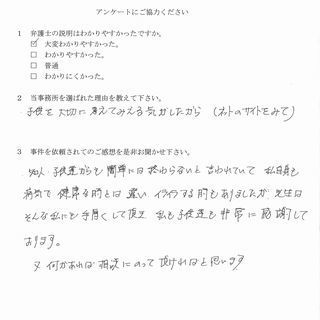 アンケートにご協力ください
1 弁護士の説明はわかりやすかったですか。
☑ 大変わかりやすかった。
□ わかりやすかった。
□ 普通
□ わかりにくかった。
2 当事務所を選ばれた理由を教えて下さい。
子供を大切に考えてみえる気がしたから (ネットのサイトをみて)
3 事件を依頼されてのご感想を是非お聞かせ下さい。
知人、子供達からも簡単には終わらないと言われていて 私自身も
病気で 健康な時とは違い イライラする時もありましたが 先生は
そんな私にも 手厚くして頂き 私も子供達も 非常に感謝して
おります。
又 何かあれば 相談にのって頂ければと思います